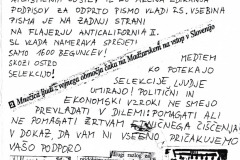 PODPISOV ZA ODPRTO PISMO VLADI RS, VSEBINA
PISMA JE NA ZADNJI STRANI
NA FLAJERJU ANTICALIFORNIA II.
SLO VLADA NAMERAVA SPREJETI
SAMO 1600 BEGUNCEV!
SKOZI OSTRO
SELEKCIJO!
MEDTEM
KO POTEKAJO
Množica ljudi z vojnega območja čaka na Madžarskem na vstop v Slovenijo
SELEKCIJE, LJUDJE
UMIRAJO! POLITIČNI IN
EKONOMSKI VZROKI NE SMEJO
PREVLADATI V DILEMI: POMAGATI ALI
NE POMAGATI ŽRTVAM ETNIČNEGA ČIŠČENJA!
V DOKAZ, DA VAM NI VSEENO PRIČAKUJEMO
VAŠO PODPORO